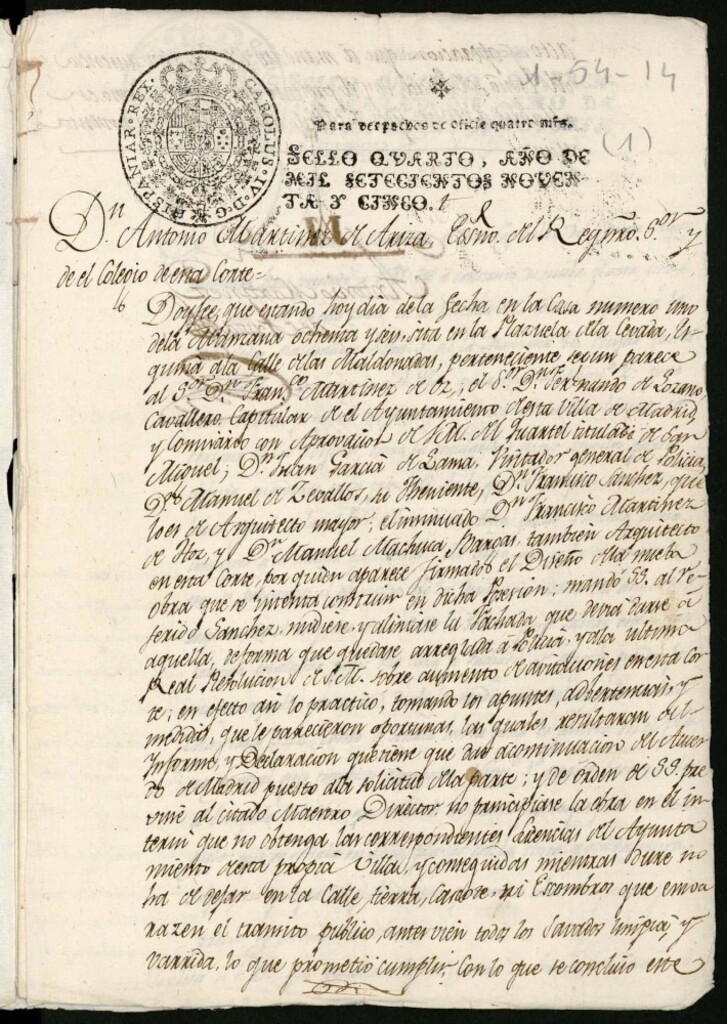 1-54-14
(1)
CAROLUS·IV·D·G·HISPANIAR·REX·
Para despachos de oficio quatro mrs.
SELLO QVARTO, AÑO DE
MIL SETECIENTOS NOVEN-
TA Y CINCO.
Dn. Antonio Martinez de Ariza, Essno. del Reyno. Sor y
de el Colegio de esta Corte=
Doy fee, que estando hoy dia de la fecha en la Casa numero uno
de la Manzana ochenta y seis, sita en la Plazuela de la Cevada, es-
quina a la Calle de las Maldonadas, perteneciente segun parece
al Sor. Dn. Franco. Martinez de Oz, el Sor. Dn. Fernando de Lozano,
Cavallero Capitular de el Ayuntamiento de esta Villa de Madrid,
y Comisario con Aprovacion de S.M. del Quartel titulado de San
Miguel; Dn. Juan Garcia de Lama Visitador general de Policia,
Dn. Manuel de Zevallos, su Theniente, Dn. Francisco Sanchez, que
lo es de Arquitecto mayor; el insinuado Dn. Francisco Martinez
de Hoz, y Dn. Manuel Machuca Bargas, tambien Arquitecto
en esta Corte, por quien aparece firmado el Diseño de la nueba
obra que se intenta construir en dicha Posesion; mandó SS. al re-
ferido Sanchez, midiese, y alinease la Fachada que devia darse á
aquella, de forma que quedase arreglada á Policia, y a la ultima
Real Resolucion de S.M. sobre aumento de avitaciones en esta Cor-
te; en efecto asi lo practicó, tomando los apuntes, advertencias, y
medidas, que le parecieron oportunas, las quales resultaran del
Informe, y Declaracion que tiene que dar a continuacion del Acuer-
do de Madrid puesto a la solicitud de la parte; y de orden de SS. pre-
vine al citado Maestro Director no principiase la obra en el in-
terin que no obtenga las correspondientes Licencias del Ayunta
miento de esta propia Villa, y conseguidas mientras dure no
ha de dejar en la Calle, tierra, Cascote, ni Escombros que emba
razen el transito publico, antes vien todos los Savados limpia, y
varrida, lo que prometió cumplir. Con lo que se concluio este